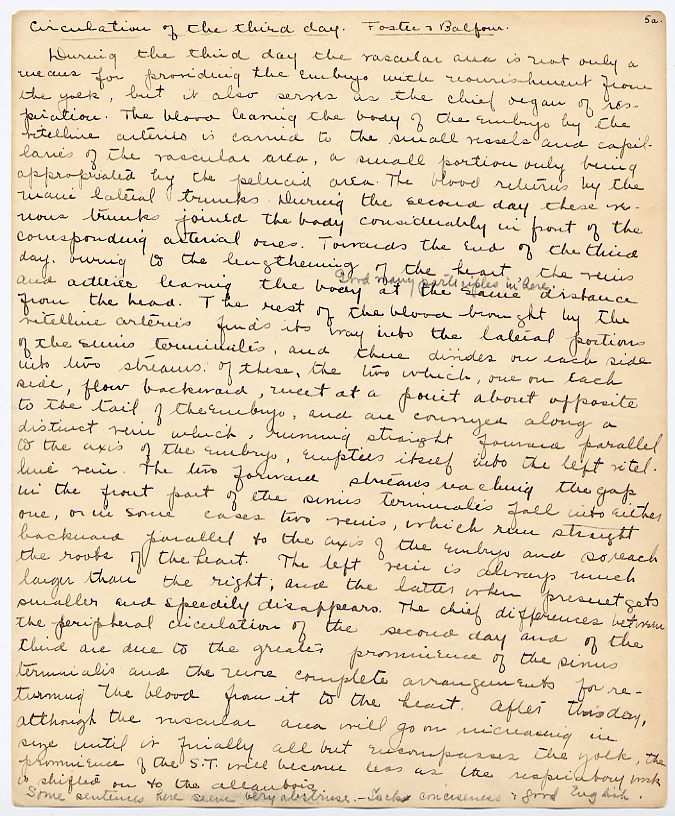 5a.
Circulation of the third day. Foster & Balfour.
During the third day the vascular area is not only a
means for providing the Embryo with nourishment from
the yolk, but it also serves as the chief organ of res-
piration. The blood leaving the body of the Embryo by the
vitelline arteries is carried to the small vessels and capil-
laries of the vascular area, a small portion only being
appropriated by the pelucid area. The blood returns by the
main lateral trunks. During the second day these ve-
nous trunks joined the body considerably in front of the
corresponding arterial ones. Towards the end of the third
day, owing to the lengthening of the heart the veins
Good many participles in here.
and arteries leaving the body at the same distance
from the head. The rest of the blood brought by the
vitelline arteries finds its way into the lateral portions
of the sinus terminalis, and there divides on each side
into two streams. Of these, the two which, one on each
side, flow backward, meet at a point about opposite
to the tail of the Embryo, and are conveyed along a
distinct vein which, running straight forward parallel
to the axis of the Embryo, empties itself into the left vitel-
line vein. The two forward streams reaching the gap
in the front part of the sinus terminalis fall into either
one, or in some cases two veins, which run straight
backward parallel to the axis of the Embryo and so reach
the roots of the heart. The left vein is always much
larger than the right; and the latter when present gets
smaller and speedily disappears. The chief differences between
the peripheral circulation of the second day and of the
third are due to the greater prominence of the sinus
terminalis and the more complete arrangements for re-
turning the blood from it to the heart. After this day,
although the vascular area will go on increasing in
size until it finally all but encompasses the yolk, the
prominence of the S.T. will become less as the respiratory work
is shifted on to the allantois
Some sentences here seem very abstruse. - Lacks conciseness & good English.